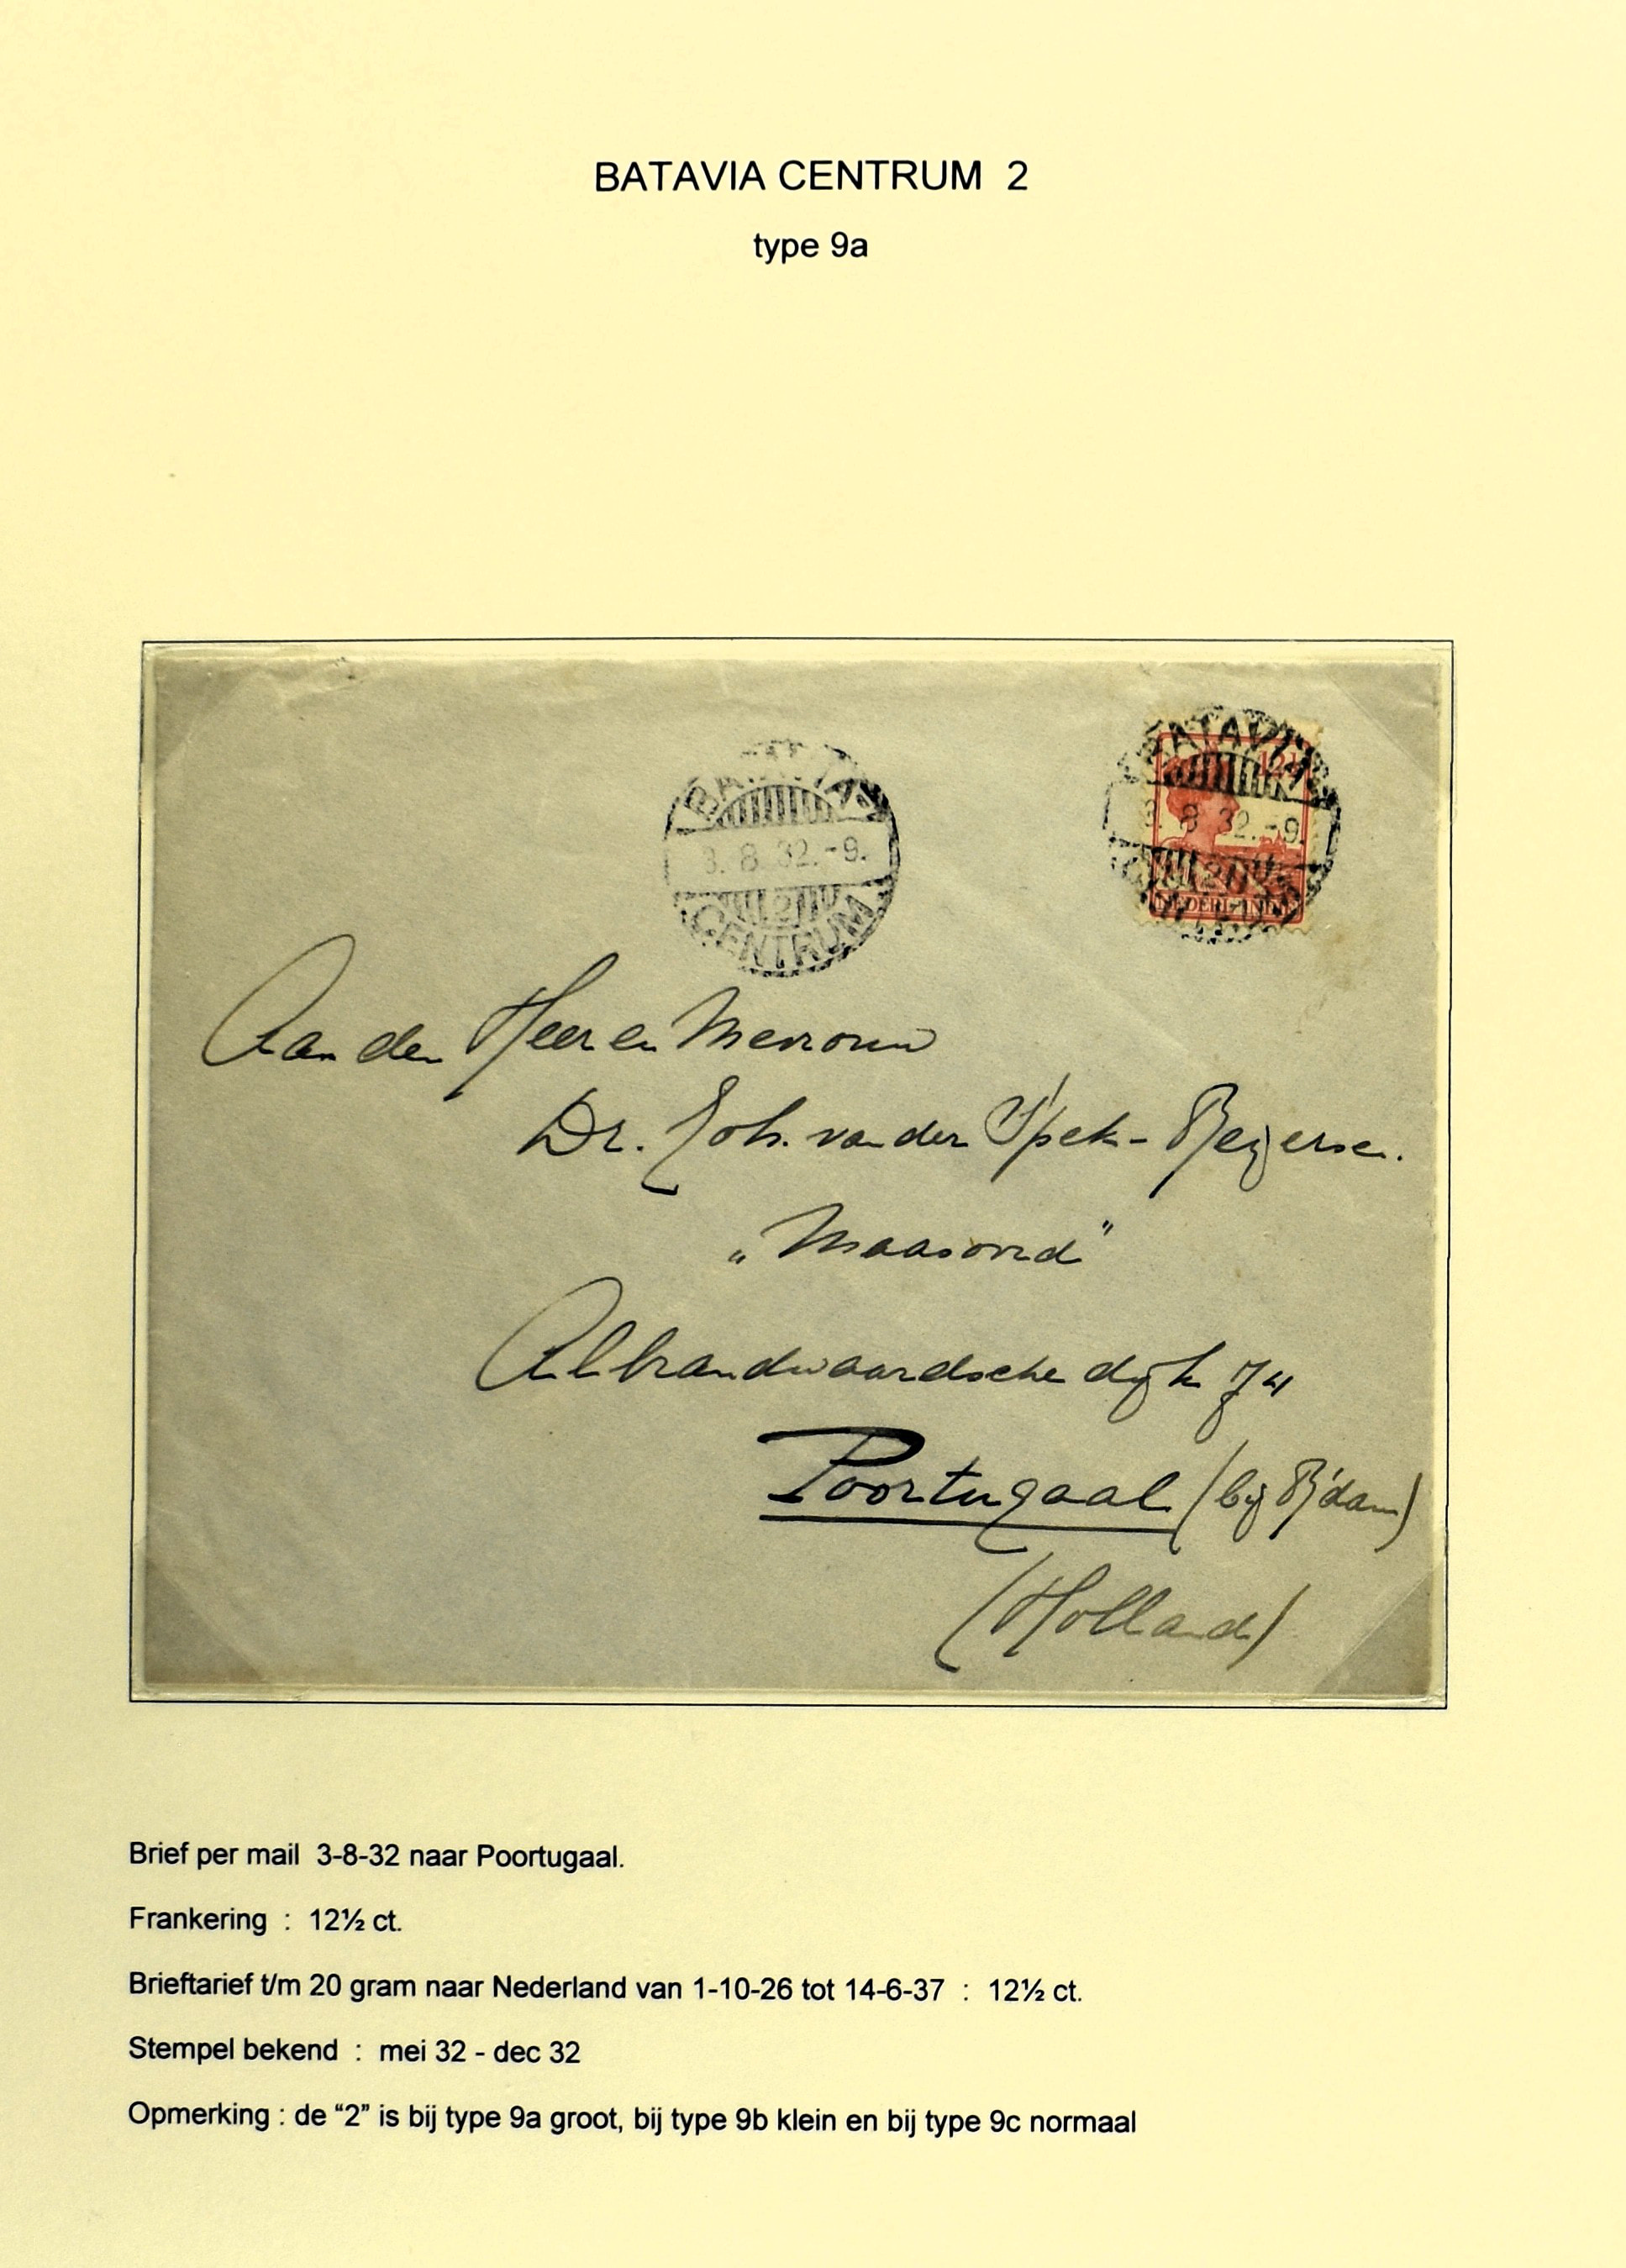 BATAVIA CENTRUM 2
type 9a
BATAVIA
3. 8. 32.-9.
2
CENTRUM
BATAVIA
12½
3 8 32.-9.
2
Aan den Heer en Mevrouw
Dr. Joh. van der Spek-Beijersen.
„Maasoord"
Albrandwaardsche dijk 74
Poortugaal (bij R'dam)
(Holland)
Brief per mail 3-8-32 naar Poortugaal.
Frankering : 12½ ct.
Brieftarief t/m 20 gram naar Nederland van 1-10-26 tot 14-6-37 : 12½ ct.
Stempel bekend : mei 32 - dec 32
Opmerking : de “2” is bij type 9a groot, bij type 9b klein en bij type 9c normaal